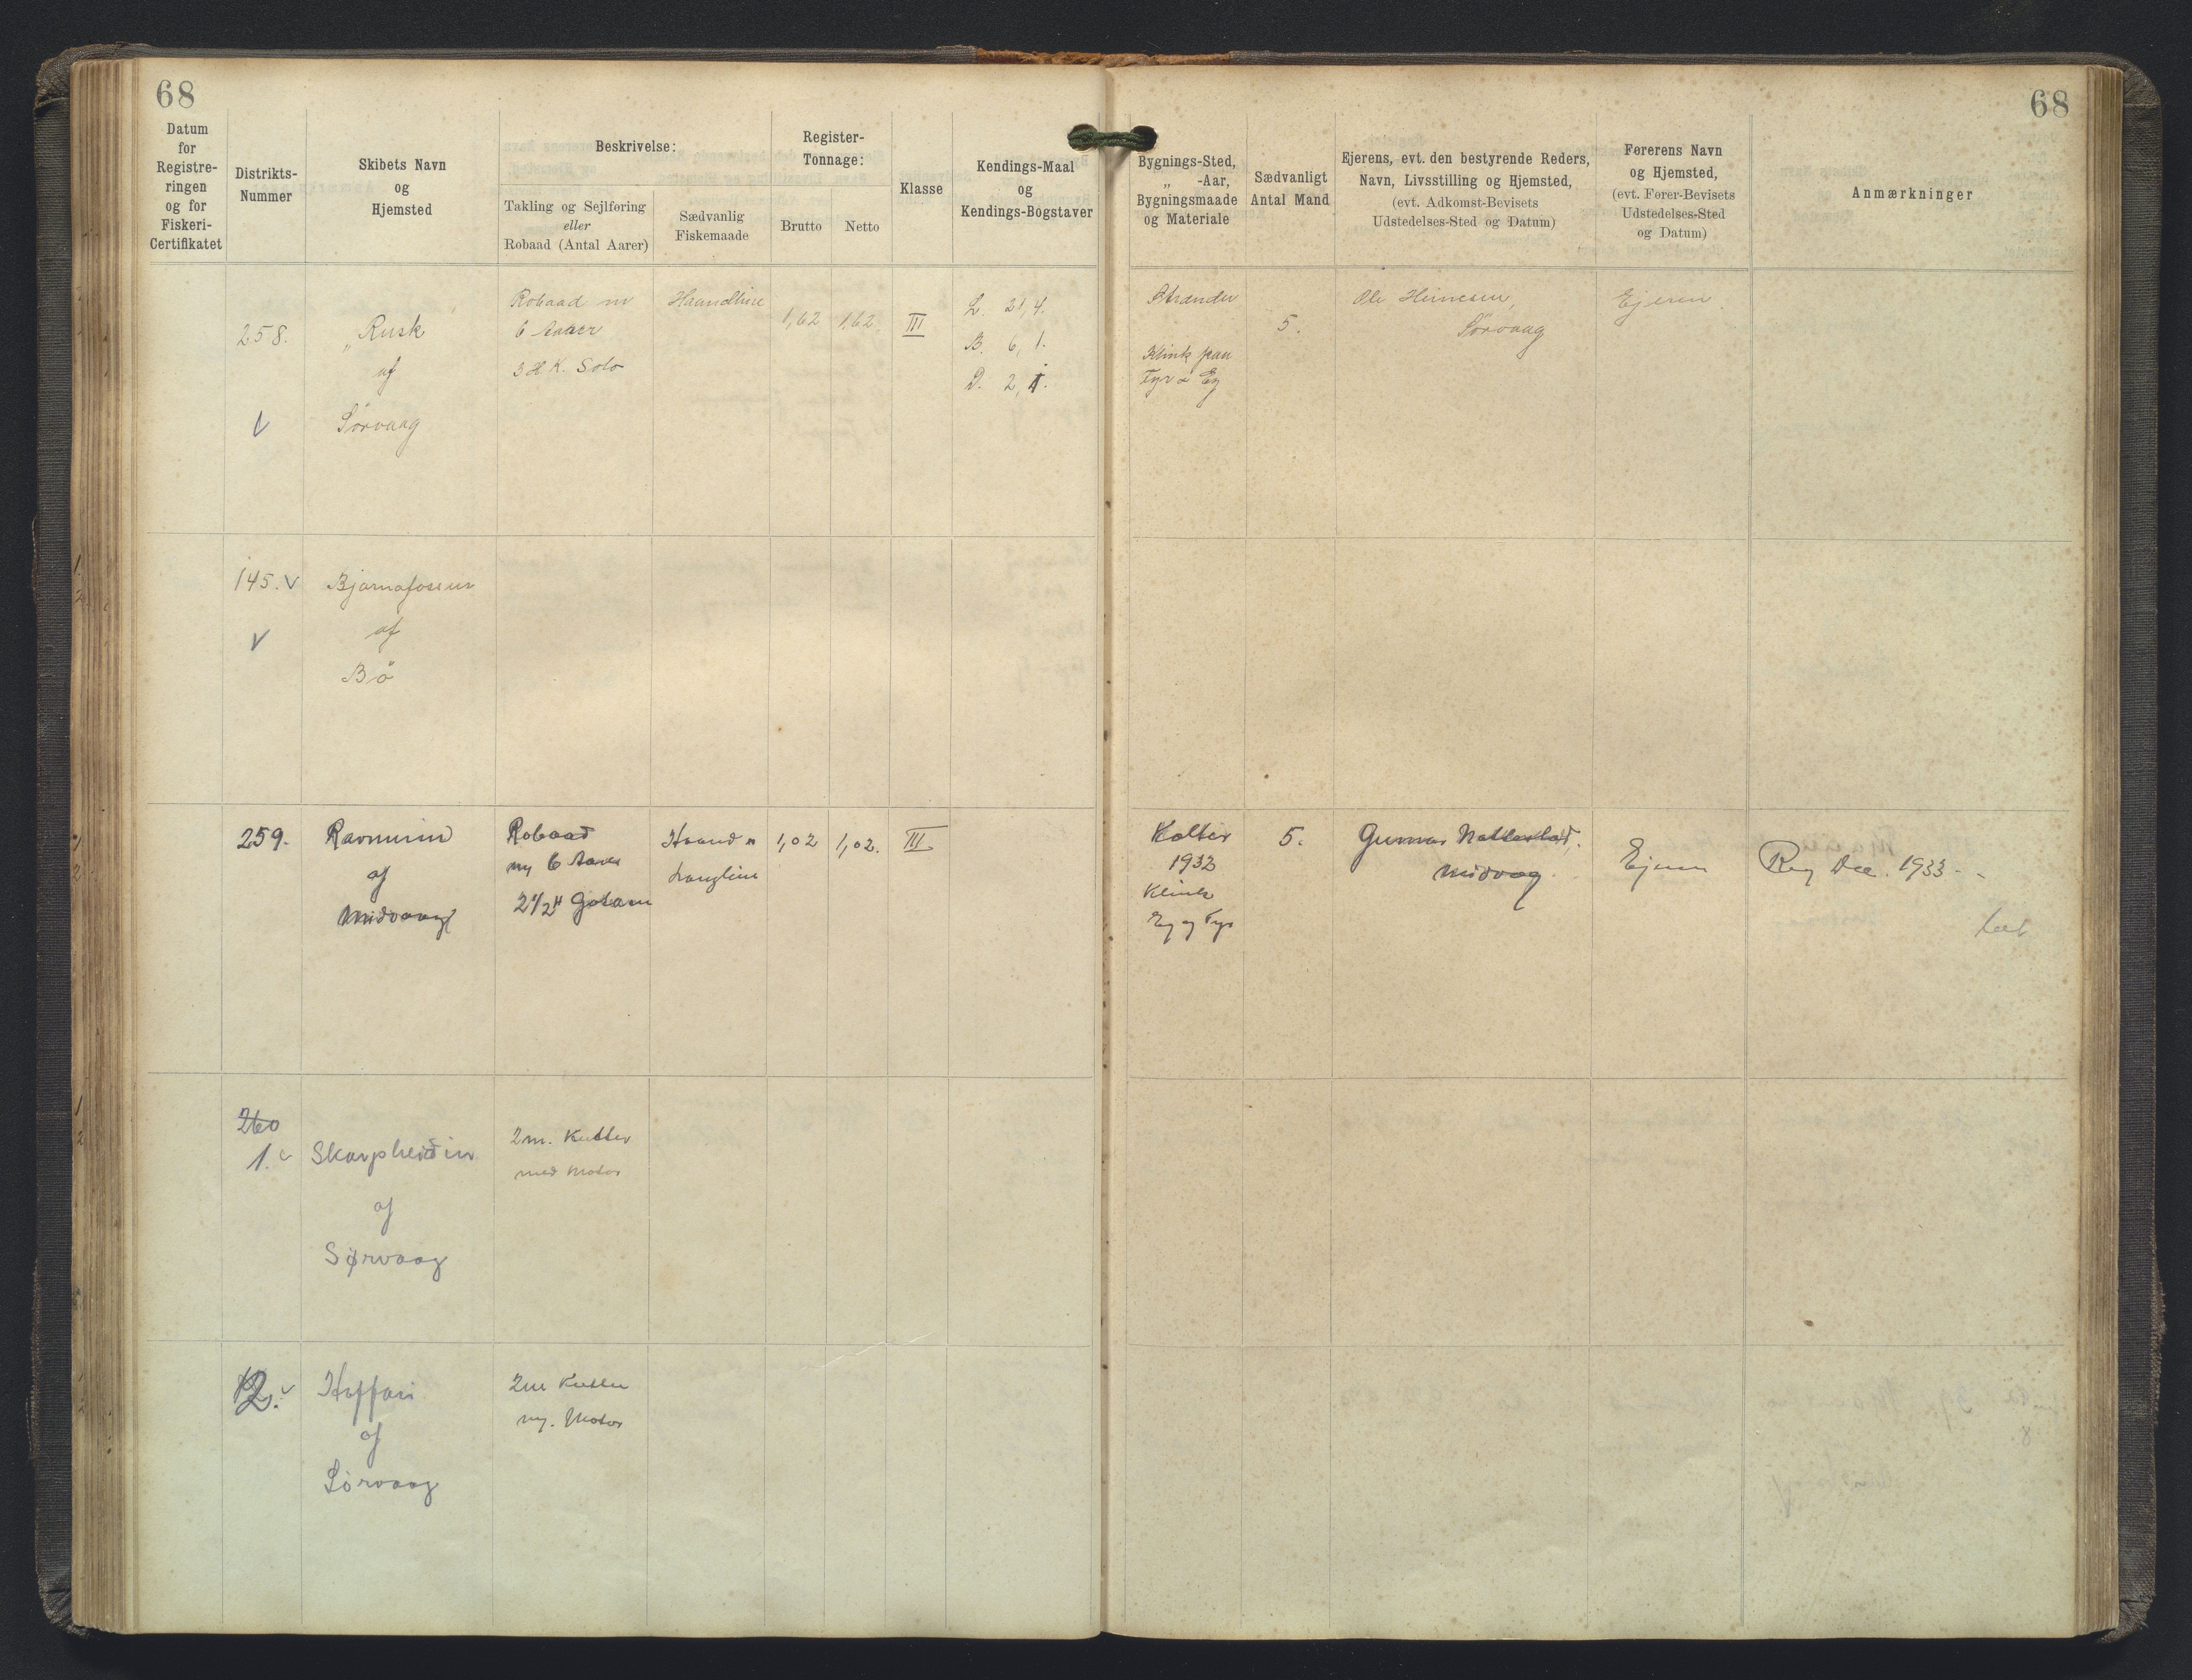 68
68
Datum
for
Registre-
ringen
og for
Fiskeri-
Certifikatet
Distrikts-
Nummer
Skibets Navn
og
Hjemsted
Beskrivelse:
Takling og Sejlføring
eller
Robaad (Antal Aarer)
Sædvanlig
Fiskemaade
Register-
Tonnage:
Brutto
Netto
Klasse
Kendings-Maal
og
Kendings-Bogstaver
Bygnings-Sted,
„ -Aar,
Bygningsmaade
og Materiale
Sædvanligt
Antal Mand
Ejerens, evt. den bestyrende Reders,
Navn, Livsstilling og Hjemsted,
(evt. Adkomst-Bevisets
Udstedelses-Sted og Datum)
Førerens Navn
og Hjemsted,
(evt. Fører-Bevisets
Udstedelses-Sted
og Datum)
Anmærkninger
258.
„Rusk"
af
Sørvaag
Robaad m
6 Aarer
3 H.K. Solo
Haandline
1,62
1,62.
III
L. 21,4.
B. 6,1.
D. 2,1.
Strander
Klink pau
Fyr & Eg
5.
Ole Heinesen,
Sörvaag
Ejeren.
145. v
af
Bö
259.
Ravnurin
af
Midvaag
Robaad
m 6 Aarer
2 1/2 H
Haand n
Langline
1,02
1,02.
III
Kolter
1932
Klink
Eg og Fyr
5.
Gunnar Nattestad,
Midvag
Ejeren
Reg Dec. 1933 -
260
1. v
Skarpheidin
af
Sørvaag
2 m. Kutter
med Motor
2. v
af
Sörvaag
2 m Kutter
m. Motor